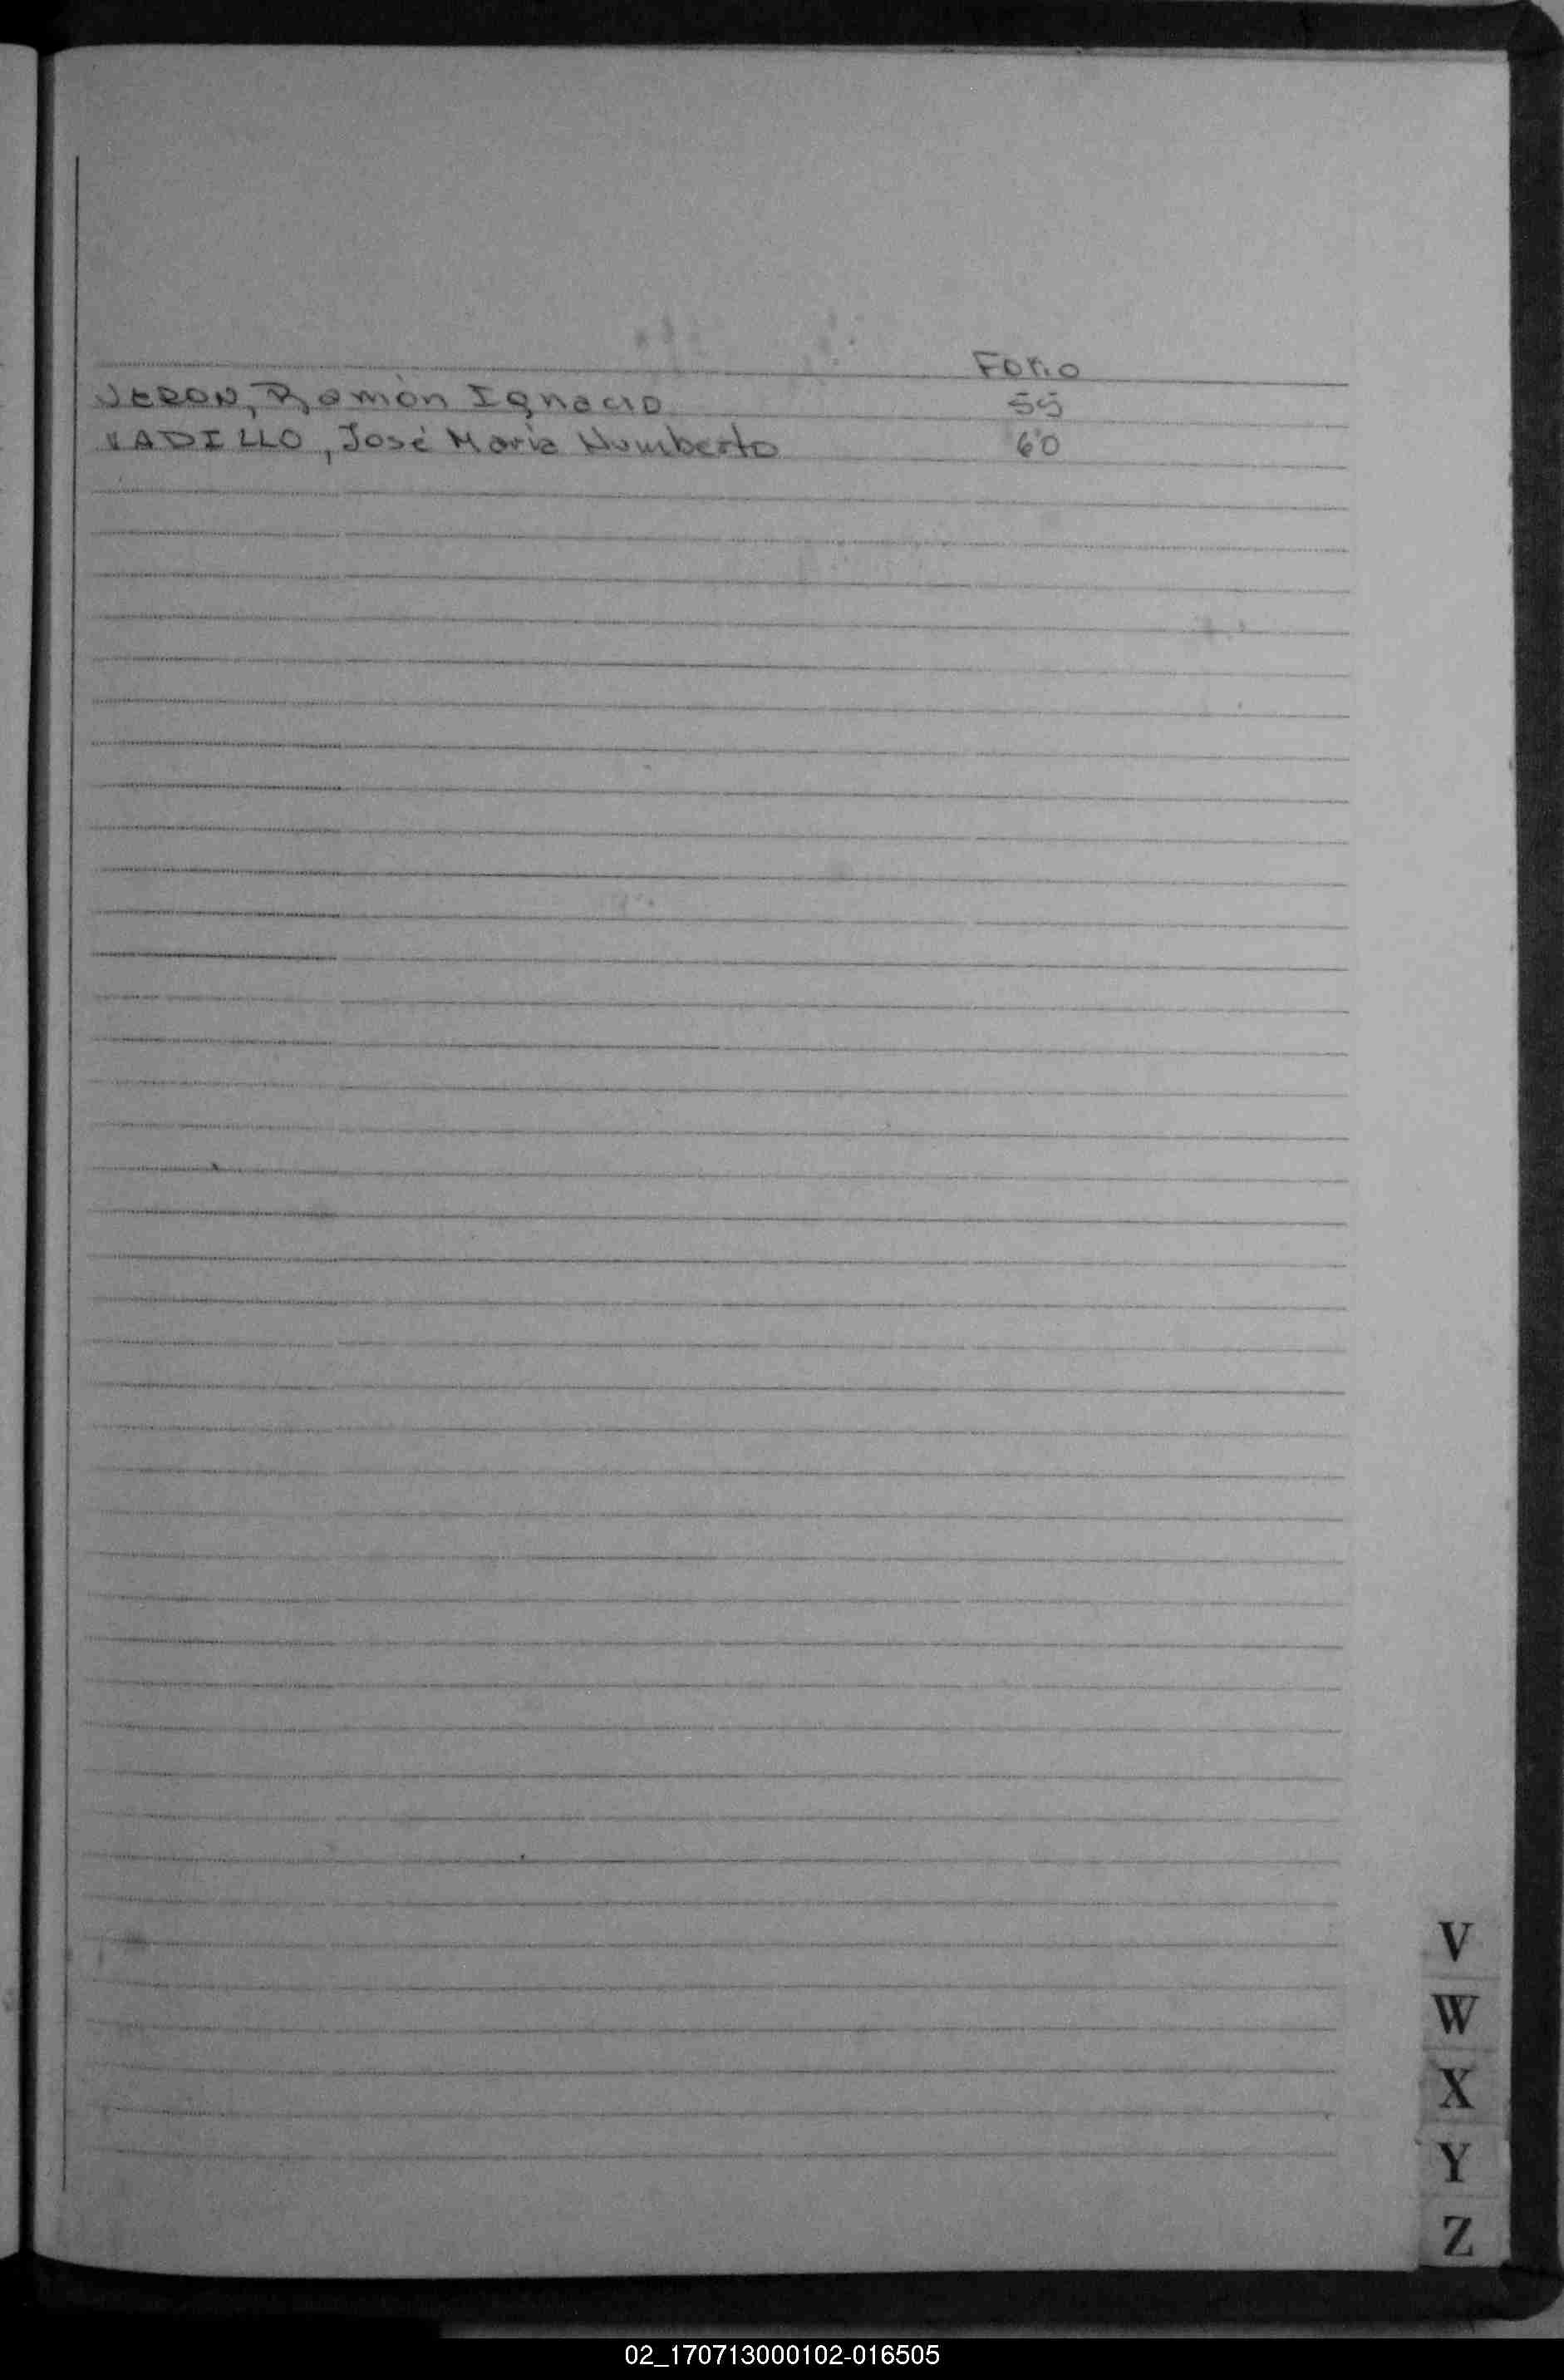 Folio
VERON, Ramón Ignacio 55
VADILLO, José María Humberto 60
V
W
X
Y
Z
02_170713000102-016505